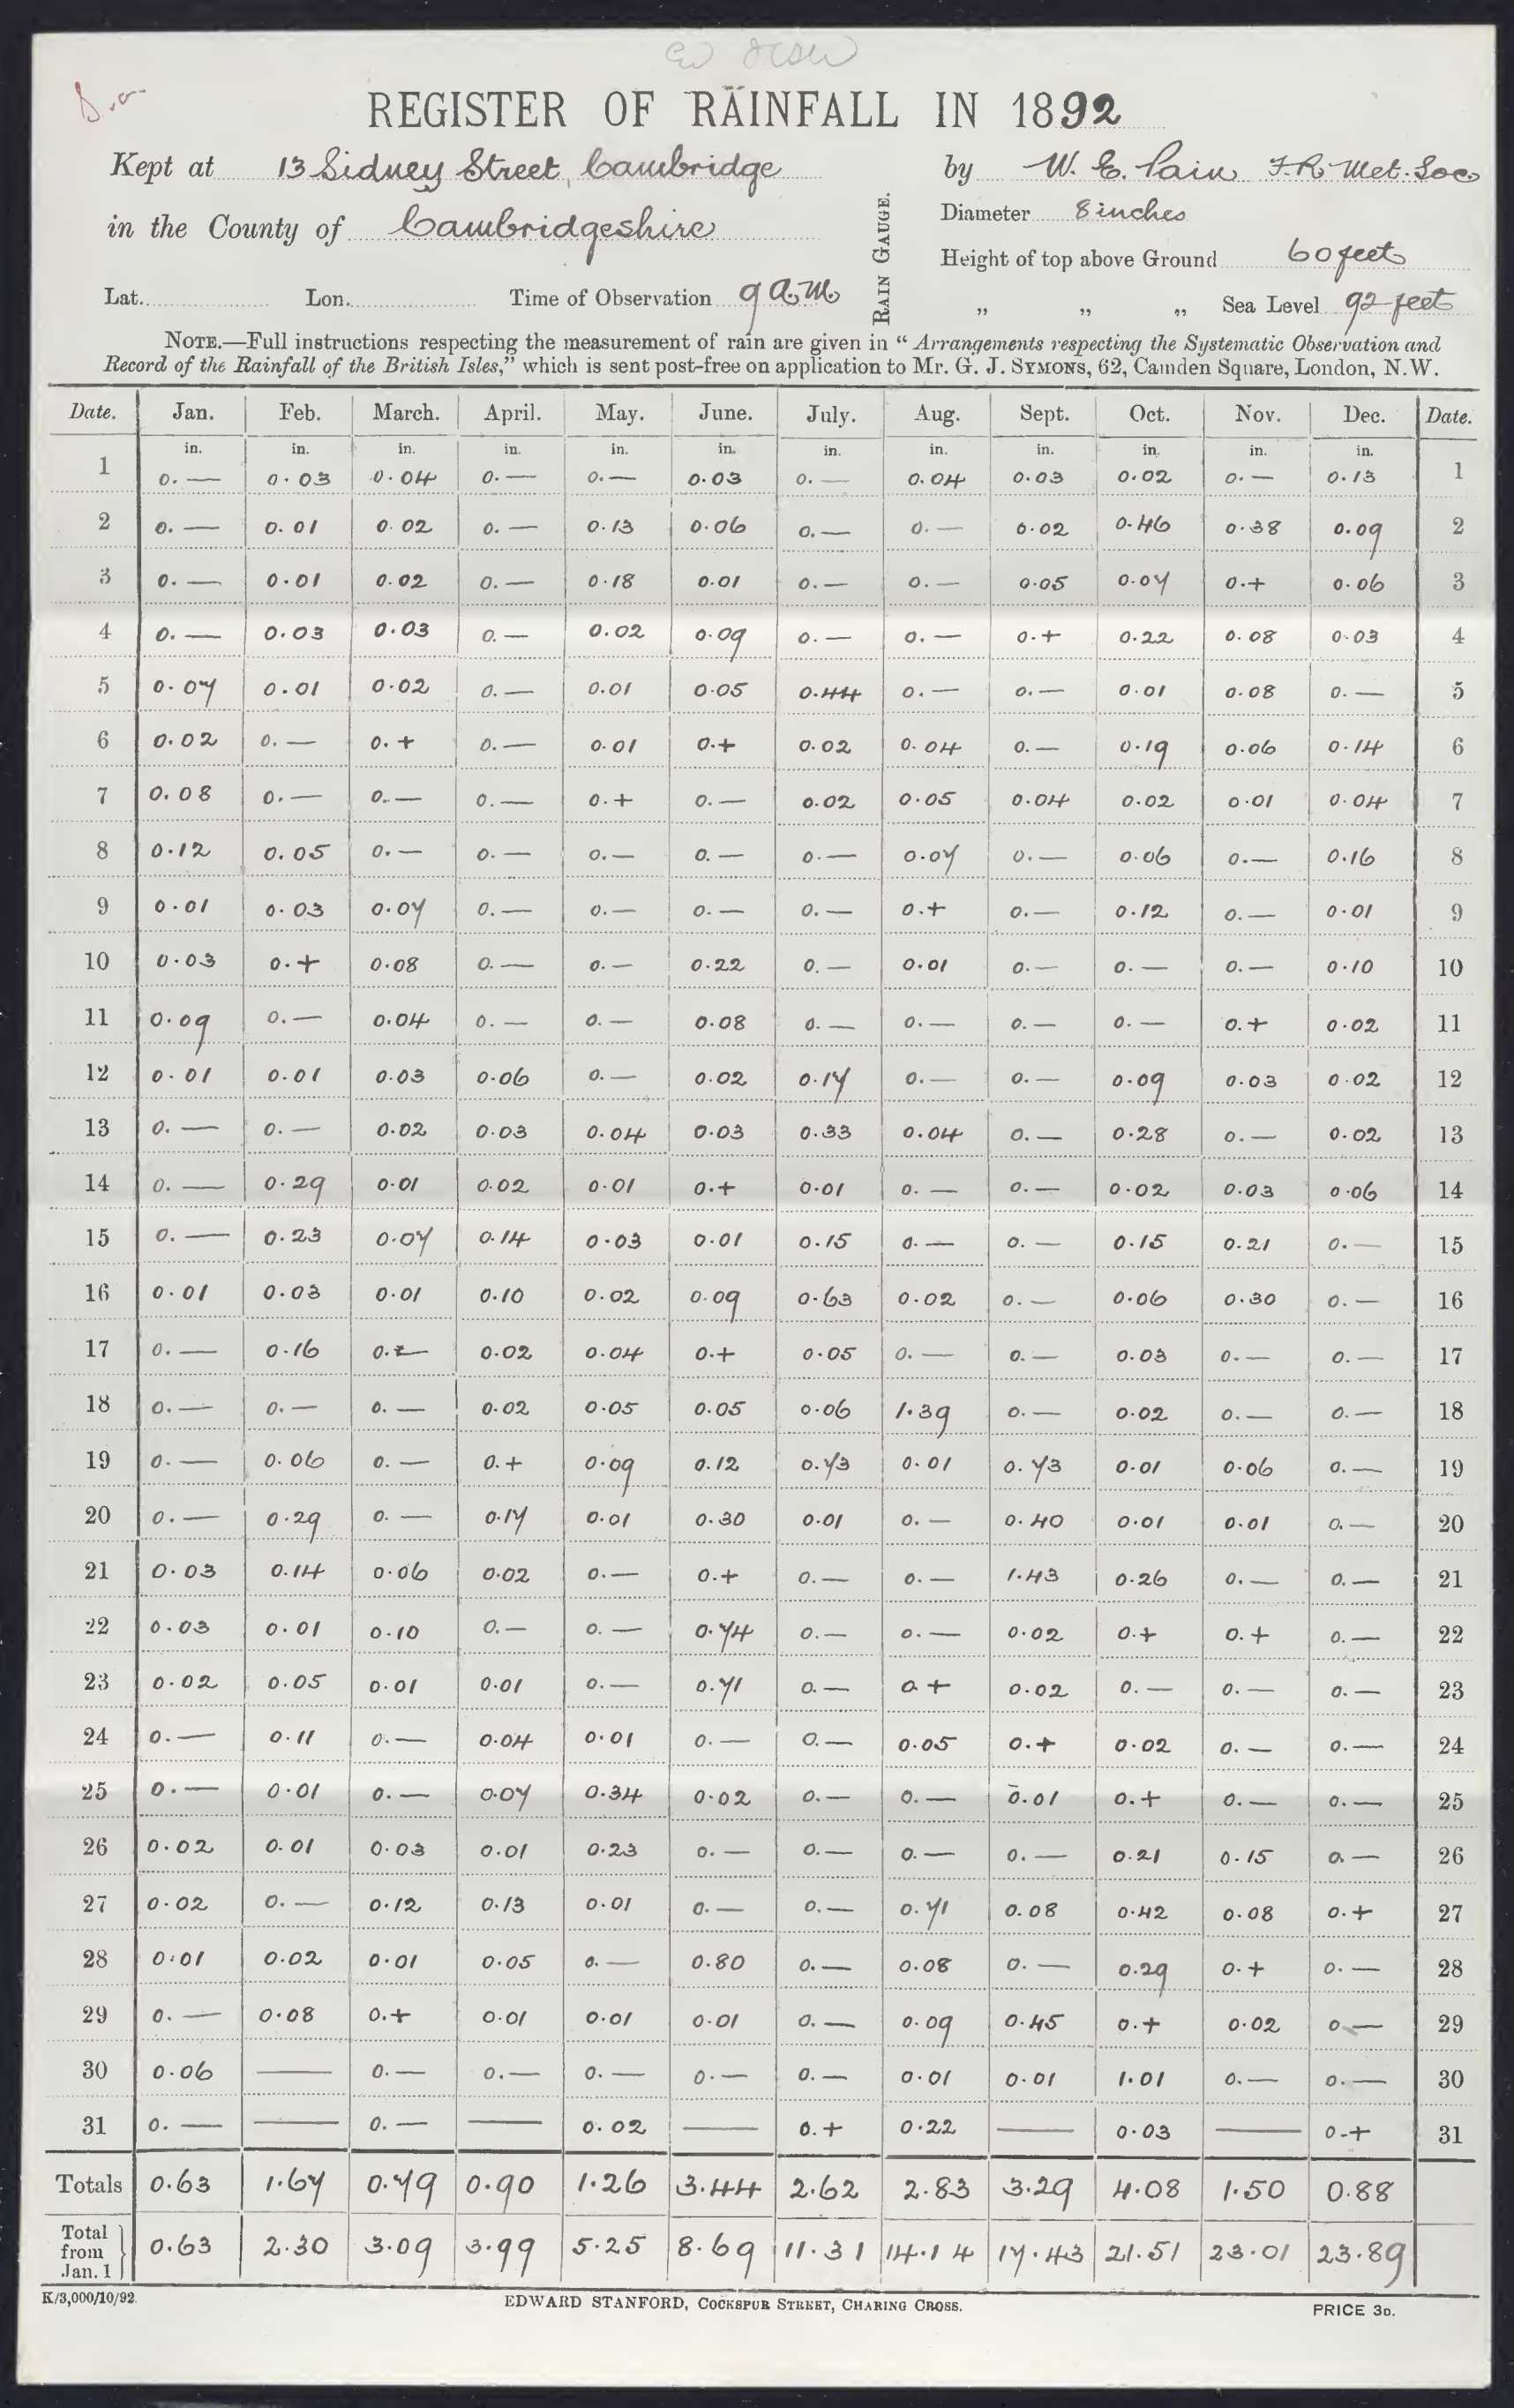 REGISTER OF RAINFALL IN 1892
Kept at 13 Sidney Street, Cambridge by W. E. Pain F.R. Met. Soc
in the County of Cambridgeshire
RAIN GAUGE.
Diameter 8 inches
Height of top above Ground 60 feet
Lat. Lon. Time of Observation 9 a.m „ „ „ Sea Level 92 feet
NOTE.—Full instructions respecting the measurement of rain are given in “ Arrangements respecting the Systematic Observation and
Record of the Rainfall of the British Isles,” which is sent post-free on application to Mr. G. J. SYMONS, 62, Camden Square, London, N.W.
Date. Jan. Feb. March. April. May. June. July. Aug. Sept. Oct. Nov. Dec. Date.
in. in. in. in. in. in. in. in. in. in. in. in.
1 0.— 0.03 0.04 0.— 0.— 0.03 0.— 0.04 0.03 0.02 0.— 0.13 1
2 0.— 0.01 0.02 0.— 0.13 0.06 0.— 0.— 0.02 0.46 0.38 0.09 2
3 0.— 0.01 0.02 0.— 0.18 0.01 0.— 0.— 0.05 0.07 0.+ 0.06 3
4 0.— 0.03 0.03 0.— 0.02 0.09 0.— 0.— 0.+ 0.22 0.08 0.03 4
5 0.07 0.01 0.02 0.— 0.01 0.05 0.44 0.— 0.— 0.01 0.08 0.— 5
6 0.02 0.— 0.+ 0.— 0.01 0.+ 0.02 0.04 0.— 0.19 0.06 0.14 6
7 0.08 0.— 0.— 0.— 0.+ 0.— 0.02 0.05 0.04 0.02 0.01 0.04 7
8 0.12 0.05 0.— 0.— 0.— 0.— 0.— 0.07 0.— 0.06 0.— 0.16 8
9 0.01 0.03 0.07 0.— 0.— 0.— 0.— 0.+ 0.— 0.12 0.— 0.01 9
10 0.03 0.+ 0.08 0.— 0.— 0.22 0.— 0.01 0.— 0.— 0.— 0.10 10
11 0.09 0.— 0.04 0.— 0.— 0.08 0.— 0.— 0.— 0.— 0.+ 0.02 11
12 0.01 0.01 0.03 0.06 0.— 0.02 0.17 0.— 0.— 0.09 0.03 0.02 12
13 0.— 0.— 0.02 0.03 0.04 0.03 0.33 0.04 0.— 0.28 0.— 0.02 13
14 0.— 0.29 0.01 0.02 0.01 0.+ 0.01 0.— 0.— 0.02 0.03 0.06 14
15 0.— 0.23 0.07 0.14 0.03 0.01 0.15 0.— 0.— 0.15 0.21 0.— 15
16 0.01 0.03 0.01 0.10 0.02 0.09 0.63 0.02 0.— 0.06 0.30 0.— 16
17 0.— 0.16 0.— 0.02 0.04 0.+ 0.05 0.— 0.— 0.03 0.— 0.— 17
18 0.— 0.— 0.— 0.02 0.05 0.05 0.06 1.39 0.— 0.02 0.— 0.— 18
19 0.— 0.06 0.— 0.+ 0.09 0.12 0.73 0.01 0.73 0.01 0.06 0.— 19
20 0.— 0.29 0.— 0.17 0.01 0.30 0.01 0.— 0.40 0.01 0.01 0.— 20
21 0.03 0.14 0.06 0.02 0.— 0.+ 0.— 0.— 1.43 0.26 0.— 0.— 21
22 0.03 0.01 0.10 0.— 0.— 0.74 0.— 0.— 0.02 0.+ 0.+ 0.— 22
23 0.02 0.05 0.01 0.01 0.— 0.71 0.— 0.+ 0.02 0.— 0.— 0.— 23
24 0.— 0.11 0.— 0.04 0.01 0.— 0.— 0.05 0.+ 0.02 0.— 0.— 24
25 0.— 0.01 0.— 0.07 0.34 0.02 0.— 0.— 0.01 0.+ 0.— 0.— 25
26 0.02 0.01 0.03 0.01 0.23 0.— 0.— 0.— 0.— 0.21 0.15 0.— 26
27 0.02 0.— 0.12 0.13 0.01 0.— 0.— 0.71 0.08 0.42 0.08 0.+ 27
28 0.01 0.02 0.01 0.05 0.— 0.80 0.— 0.08 0.— 0.29 0.+ 0.— 28
29 0.— 0.08 0.+ 0.01 0.01 0.01 0.— 0.09 0.45 0.+ 0.02 0.— 29
30 0.06 — 0.— 0.— 0.— 0.— 0.— 0.01 0.01 1.01 0.— 0.— 30
31 0.— — 0.— — 0.02 — 0.+ 0.22 — 0.03 — 0.+ 31
Totals 0.63 1.67 0.79 0.90 1.26 3.44 2.62 2.83 3.29 4.08 1.50 0.88
Total from Jan. 1 0.63 2.30 3.09 3.99 5.25 8.69 11.31 14.14 17.43 21.51 23.01 23.89
K/3,000/10/92. EDWARD STANFORD, COCKSPUR STREET, CHARING CROSS. PRICE 3D.